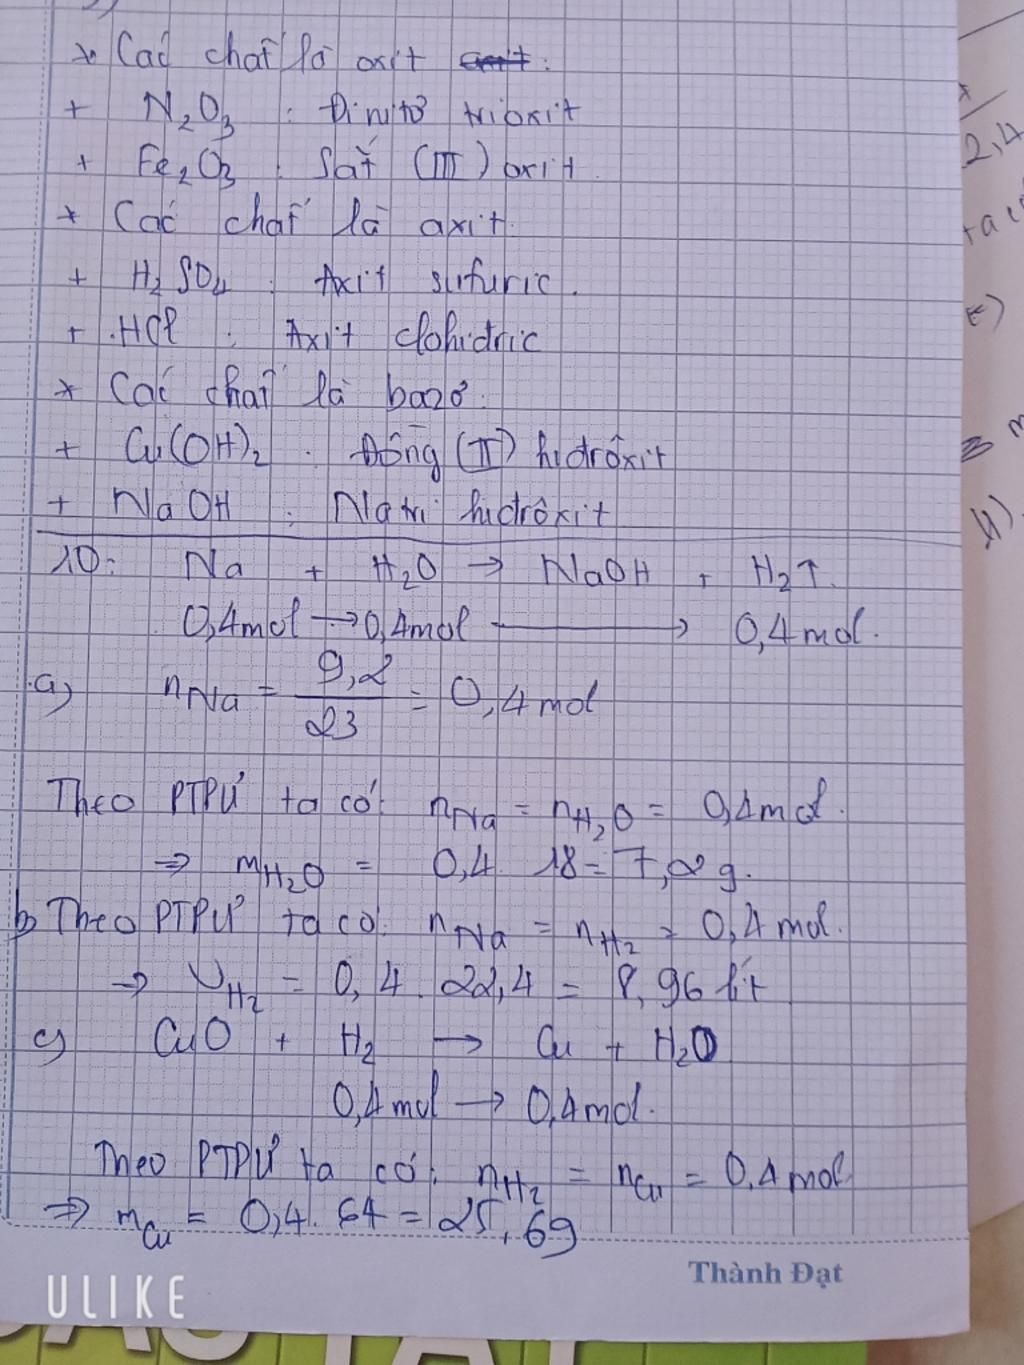 * Các chất là oxit axit:
+ N₂O₃ : Đinitơ trioxit
+ Fe₂O₃ : Sắt (III) oxit.
* Các chất là axit.
+ H₂SO₄ : Axit sufuric.
+ HCl : Axit clohidric
* Các chất là bazơ.
+ Cu(OH)₂ : Đồng (II) hidrôxit
+ NaOH : Natri hidrôxit
10: Na + H₂O → NaOH + H₂↑.
0,4mol → 0,4mol → 0,4mol.
a) nNa = 9,2/23 = 0,4mol
Theo PTPƯ ta có: nNa = nH₂O = 0,4mol.
⇒ mH₂O = 0,4. 18 = 7,2g.
b) Theo PTPƯ ta có: nNa = nH₂ = 0,4mol.
⇒ VH₂ = 0,4. 22,4 = 8,96 lít
c) CuO + H₂ → Cu + H₂O
0,4mol → 0,4mol.
Theo PTPƯ ta có: nH₂ = nCu = 0,4mol
⇒ mCu = 0,4. 64 = 25,6g
Thành Đạt
ULIKE